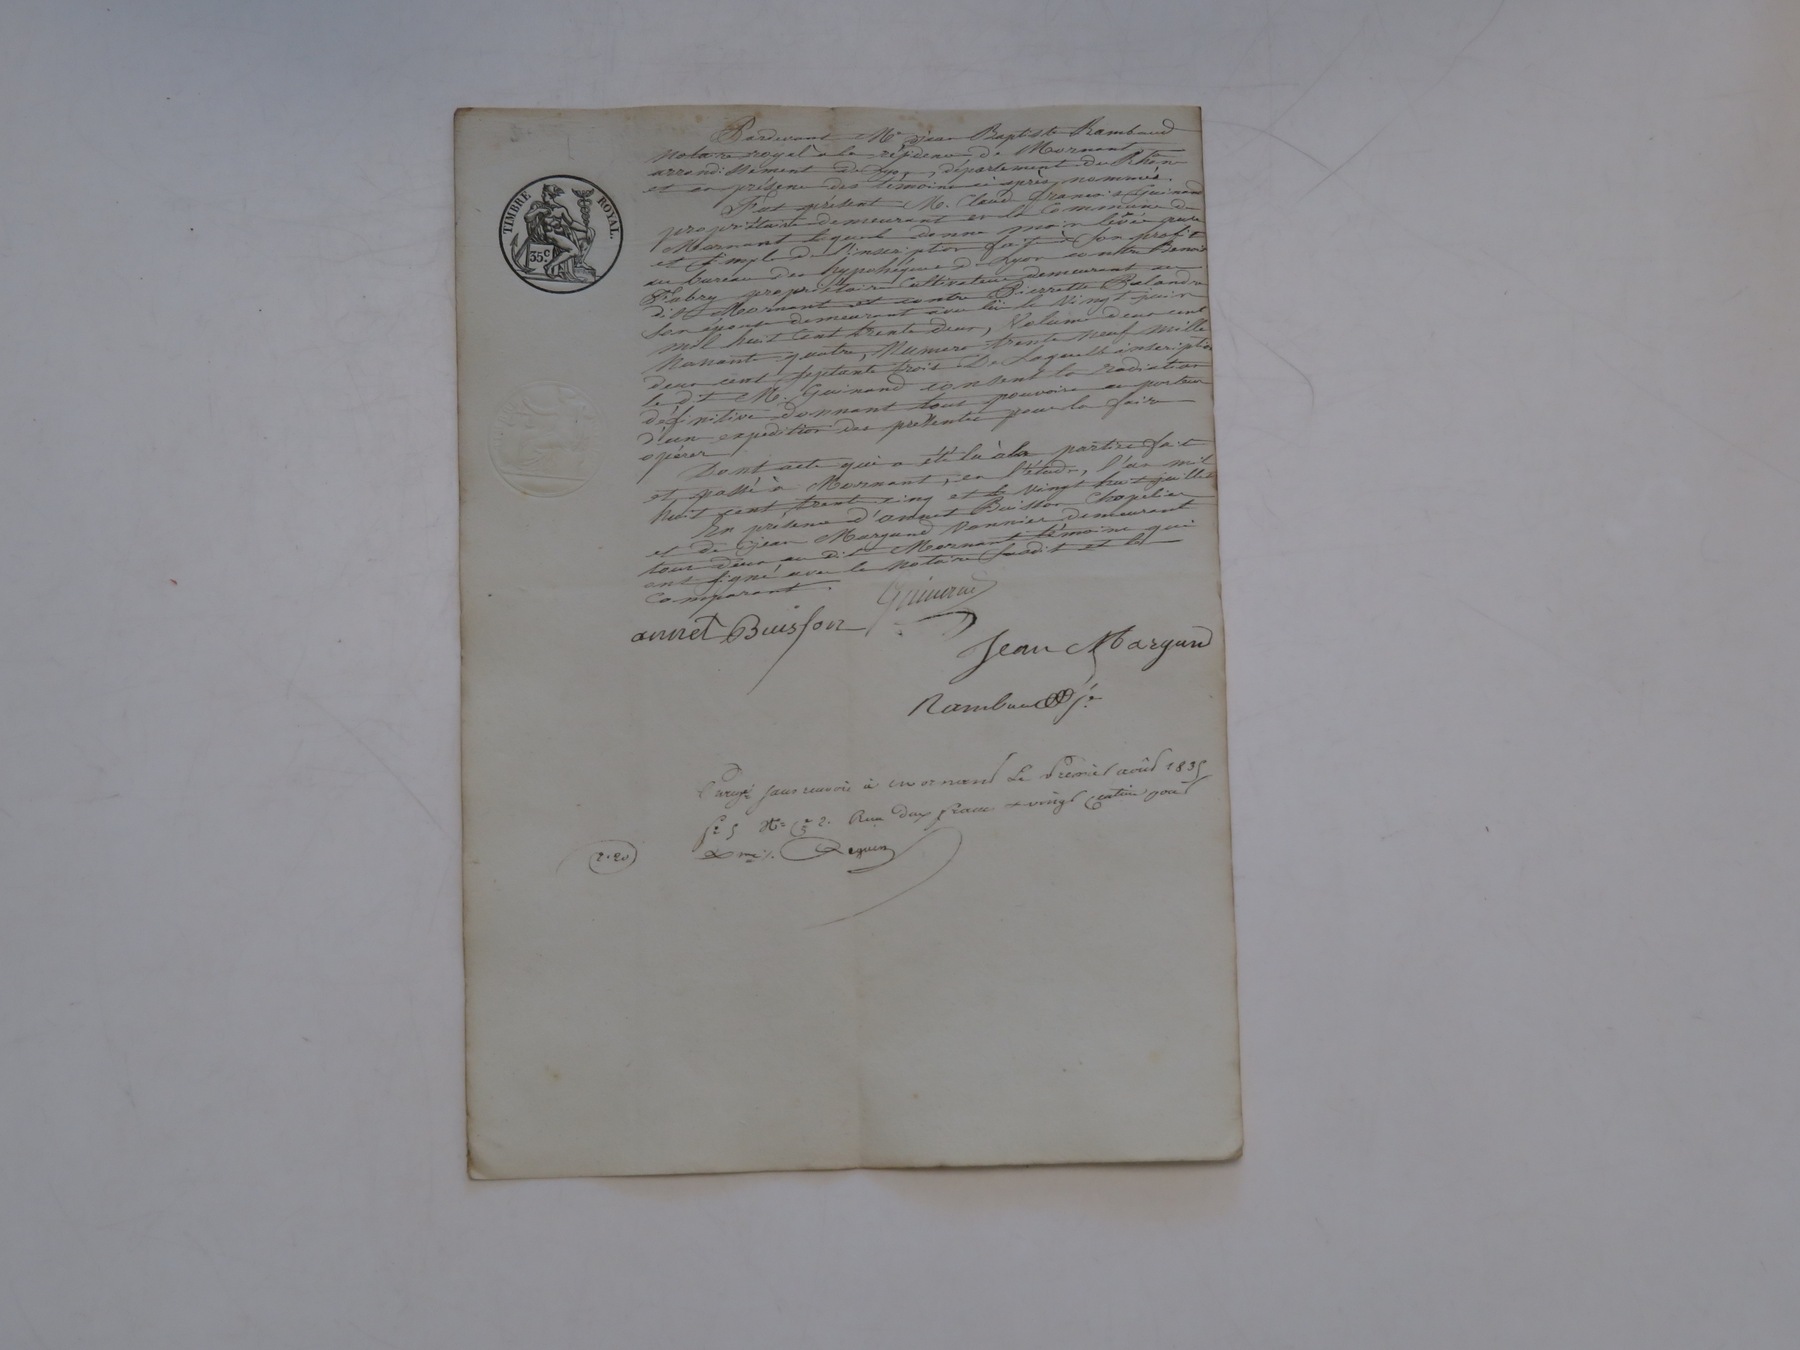 Pardevant Me Jean Baptiste Rambaud
notaire royal à la résidence de Mornant
arrondissement de Lyon, département du Rhône
et en présence des témoins ci après nommés.
Fut présent M. Claud François Guinand
propriétaire demeurant en la Commune de
Mornant lequel donne main levée pure
et simple de l'inscription faite à son profit
au bureau des hypothèques de Lyon contre Benoit
Fabry propriétaire cultivateur demeurant au
dit Mornant et contre Pierrette Balandra
son épouse demeurant avec lui le vingt juin
mil huit cent trente deux, Volume deux cent
nonante quatre, Numero trente neuf mille
deux cent septante trois De laquelle inscription
le dit M. Guinand consent la radiation
définitive donnant tout pouvoir au porteur
d'un expedition des présentes pour la faire
opérer.
Dont acte qui a été lu à la partie fait
et passé à Mornant, en l'étude, l'an mil
huit cent trente cinq et le vingt huit juillet
En présence d'annet Buisson Chapelier
et de Jean Margand Vannier demeurant
tous deux au dit Mornant témoins qui
ont signé avec le notaire susdit et le
comparant.
TIMBRE ROYAL.
35 c
Guinand
annet Buisson
Jean Margand
Rambaud
sans renvoi à mornant Le Premier août 1835
fo 5 Ro Ce 2. Reçu deux francs vingt centimes pour
Dme
2.20